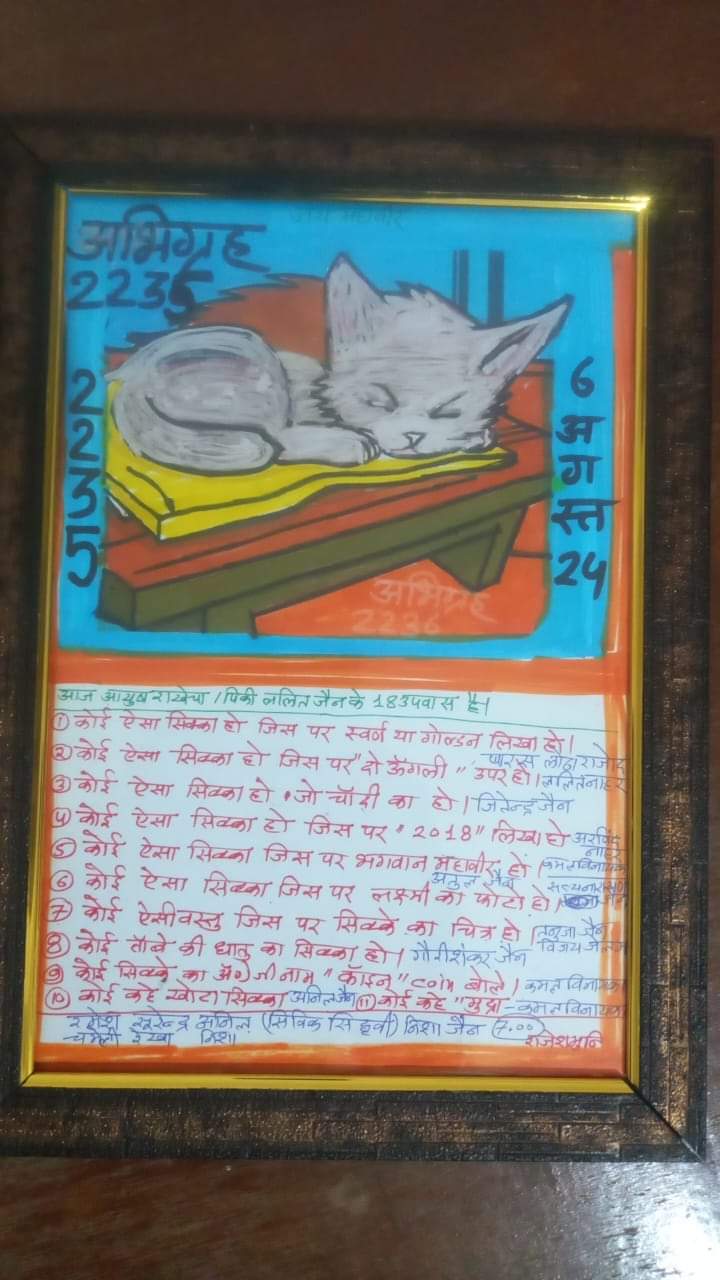 जय महावीर
अभिग्रह
2235
2235
6 अगस्त 24
अभिग्रह
2236
आज आयुष रायेचा / पिंकी ललित जैन के 18 उपवास है।
① कोई ऐसा सिक्का हो जिस पर स्वर्ण या गोल्डन लिखा हो।
पारस लोढा राजोद
② कोई ऐसा सिक्का हो जिस पर "दो ऊँगली" उपर हो। ललित नाहर
③ कोई ऐसा सिक्का हो जो चाँदी का हो। जितेन्द्र जैन
④ कोई ऐसा सिक्का हो जिस पर "2018" लिखा हो अरविंद
⑤ कोई ऐसा सिक्का जिस पर भगवान महावीर हो। कमल विनायका
अतुल जैन
⑥ कोई ऐसा सिक्का जिस पर लक्ष्मी का फोटो हो।
⑦ कोई ऐसी वस्तु जिस पर सिक्के का चित्र हो। तनुजा जैन
विजय
⑧ कोई ताँबे की धातु का सिक्का हो। गौरीशंकर जैन
⑨ कोई सिक्के का अंग्रेजी नाम "कॉइन" coin बोले। कमल विनायका
⑩ कोई कहे खोटा सिक्का अनिल जैन ⑪ कोई कहे "मुद्रा - कमल विनायका
सुरेन्द्र अनिल (सिविक सिंघवी) निशा जैन (7.00)
चमेली निशा राजेशमुनि